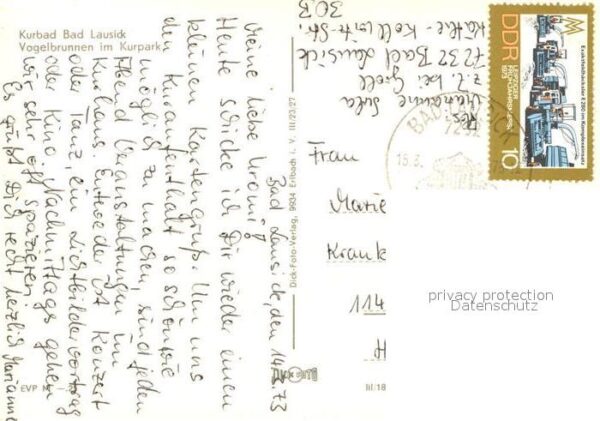 Kurbad Bad Lausick
Vogelbrunnen im Kurpark
Bad Lausick, den 14.3.73
Meine liebe
Heute schicke ich Dir wieder einen
kleinen Kartengruß. Um uns
den Kuraufenthalt so schön wie
möglich zu machen, sind jeden
Abend Veranstaltungen im
Kurhaus. Entweder ist Konzert
oder Tanz, ein Lichtbildervortrag
oder Kino. Nachmittags gehen
wir sehr oft spazieren.
Es grüßt Dich recht herzlich Marianne
EVP
Dick-Foto-Verlag, 9934 Erlbach i. V. III/23/27
III/18
Abs.
Marianne
z. Z. bei
7232 Bad Lausick
Käthe-Kollwitz-Str.
30B
BAD LAUSICK
723
15.3.
DDR
LEIPZIGER
FRÜHJAHRSMESSE
1973
Exaktfeldhäcksler E 280 im Komplexeinsatz
10
Frau
Marie
Krank
114
H
privacy protection
Datenschutz